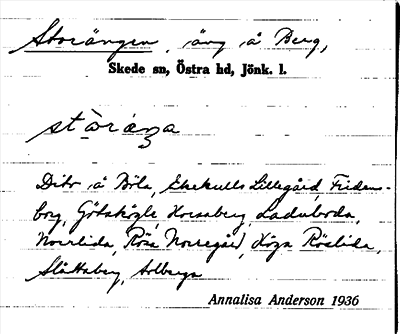 Storängen, äng å Berg,
Skede sn, Östra hd, Jönk. l.
stòràŋa
Dito å Böla, Ekekulls Lillegård, Fridens-
borg, Götshögle, Korsaberg, Ladubodа,
Norrlida, Rösa Norregård, Höga Röslida,
Slättaberg,
Annalisa Anderson 1936